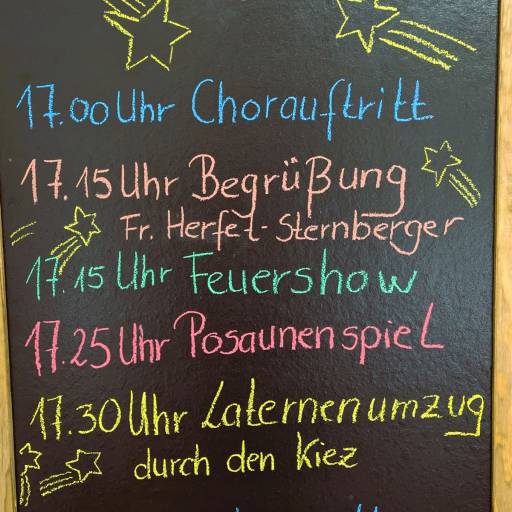 17.00 Uhr Chorauftritt
17.15 Uhr Begrüßung
Fr. Herfet-Sternberger
17.15 Uhr Feuershow
17.25 Uhr Posaunenspiel
17.30 Uhr Laternenumzug
durch den Kiez